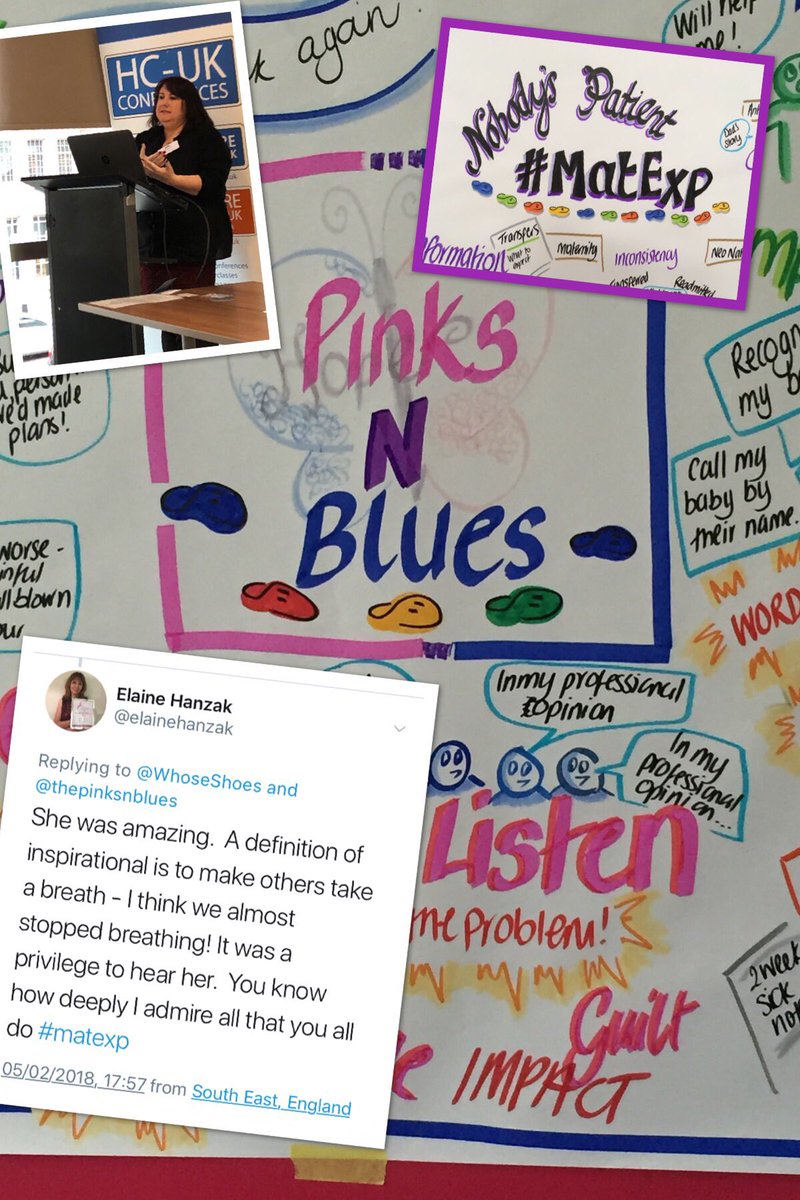 k again.
Will help
me!
HC-UK
CONFERENCES
Nobody's Patient
#MatExp
Dad's
story
Transfers
What to
expect
Maternity
formation
Inconsistency
Neo Na
Readmitted
Pinks
N
Blues
Hope
person
we'd made
plans!
Recogn
my b
Call my
baby by
their name.
worse -
WORD
Elaine Hanzak
@elainehanzak
Replying to @WhoseShoes and
@thepinksnblues
She was amazing. A definition of
inspirational is to make others take
a breath - I think we almost
stopped breathing! It was a
privilege to hear her. You know
how deeply I admire all that you all
do #matexp
05/02/2018, 17:57 from South East, England
In my professional
opinion
In my
professional
opinion...
Listen
the problem!
Guilt
IMPACT
2 week
sick
not